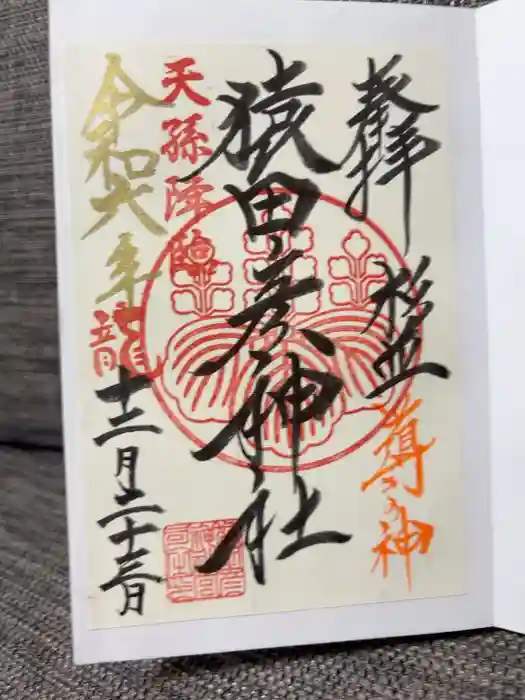 奉拝
杉並
導きの神
猿田彦神社
天孫降臨
令和六年
龍
十二月二十三日